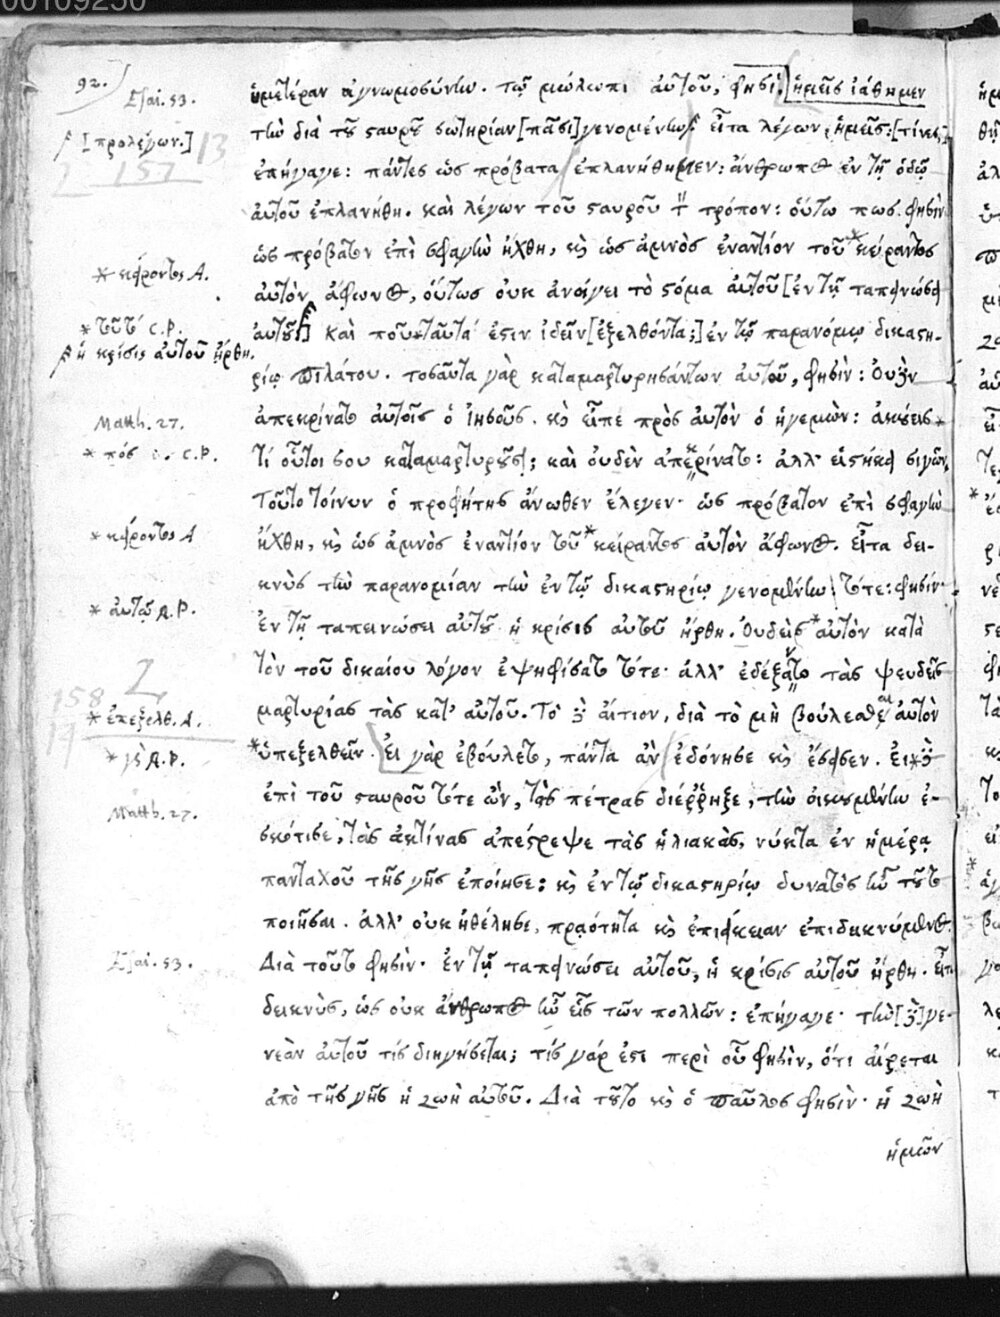 00109250
92.
Εsai. 53.
ἡμετέραν ἀγνωμοσύνην. τῷ μώλωπι αὐτοῦ, φησὶ, ἡμεῖς ἰάθημεν
[προλέγων.] 13
τὴν διὰ τοῦ σταυροῦ σωτηρίαν [πᾶσι] γενομένην. εἶτα λέγων ἡμεῖς: [τίνες]
157
ἐπήγαγε: πάντες ὡς πρόβατα ἐπλανήθημεν: ἄνθρωπος ἐν τῇ ὁδῷ
αὐτοῦ ἐπλανήθη. καὶ λέγων τοῦ σταυροῦ τὸν τρόπον: οὕτω πως φησίν
ὡς πρόβατον ἐπὶ σφαγὴν ἤχθη, καὶ ὡς ἀμνὸς ἐναντίον τοῦ *κείραντος
* κείροντος A.
αὐτὸν ἄφωνος, οὕτως οὐκ ἀνοίγει τὸ στόμα αὐτοῦ [ἐν τῇ ταπεινώσει
* τοῦτ' C.P.
αὐτοῦ] καὶ ποῦ *ταῦτά ἐστιν ἰδεῖν [ἐξελθόντα;] ἐν τῷ παρανόμῳ δικαστη-
ἡ κρίσις αὐτοῦ ἤρθη.
ρίῳ Πιλάτου. τοσαῦτα γὰρ καταμαρτυρησάντων αὐτοῦ, φησὶν: Οὐδὲν
Matth. 27.
ἀπεκρίνατο αὐτοῖς ὁ Ἰησοῦς. καὶ εἶπε πρὸς αὐτὸν ὁ ἡγεμών: ἀκούεις *
* πόσ C.P.
τί οὗτοι σου καταμαρτυροῦσι; καὶ οὐδὲν ἀπεκρίνατο: ἀλλ' εἱστήκει σιγῶν.
Τοῦτο τοίνυν ὁ προφήτης ἄνωθεν ἔλεγεν· ὡς πρόβατον ἐπὶ σφαγὴν
* κείροντος A
ἤχθη, καὶ ὡς ἀμνὸς ἐναντίον τοῦ *κείραντος αὐτὸν ἄφωνος. εἶτα δει-
κνὺς τὴν παρανομίαν τὴν ἐν τῷ δικαστηρίῳ γενομένην τότε: φησίν·
* αὐτῷ A.P.
ἐν τῇ ταπεινώσει αὐτοῦ ἡ κρίσις αὐτοῦ ἤρθη. Οὐδεὶς *αὐτὸν κατὰ
τὸν τοῦ δικαίου λόγον ἐψηφίσατο τότε· ἀλλ' ἐδέξαντο τὰς ψευδεῖς
158
μαρτυρίας τὰς κατ' αὐτοῦ. Τὸ δὲ αἴτιον, διὰ τὸ μὴ βούλεσθαι αὐτὸν
* ἐπεξελθ. A.
*ὑπεξελθεῖν. Εἰ γὰρ ἐβούλετο, πάντα ἂν ἐδόνησε καὶ ἔσεισεν. εἰ *δὲ
* γὰρ A.P.
ἐπὶ τοῦ σταυροῦ τότε ὢν, τὰς πέτρας διέῤῥηξε, τὴν οἰκουμένην ἐ-
Matth. 27.
σκότισε, τὰς ἀκτίνας ἀπέστρεψε τὰς ἡλιακὰς, νύκτα ἐν ἡμέρᾳ
πανταχοῦ τῆς γῆς ἐποίησε: καὶ ἐν τῷ δικαστηρίῳ δυνατὸς ἦν τοῦτο
ποιῆσαι. ἀλλ' οὐκ ἠθέλησε, πραότητα καὶ ἐπιείκειαν ἐπιδεικνύμενος.
Εsai. 53.
Διὰ τοῦτο φησὶν· ἐν τῇ ταπεινώσει αὐτοῦ, ἡ κρίσις αὐτοῦ ἤρθη. εἶτα
δεικνὺς, ὡς οὐκ ἄνθρωπος ἦν εἷς τῶν πολλῶν: ἐπήγαγε· τὴν [δὲ] γε-
νεὰν αὐτοῦ τίς διηγήσεται; τίς γάρ ἐστι περὶ οὗ φησὶν, ὅτι αἴρεται
ἀπὸ τῆς γῆς ἡ ζωὴ αὐτοῦ. Διὰ τοῦτο καὶ ὁ Παῦλος φησίν· ἡ ζωὴ
ἡμῶν